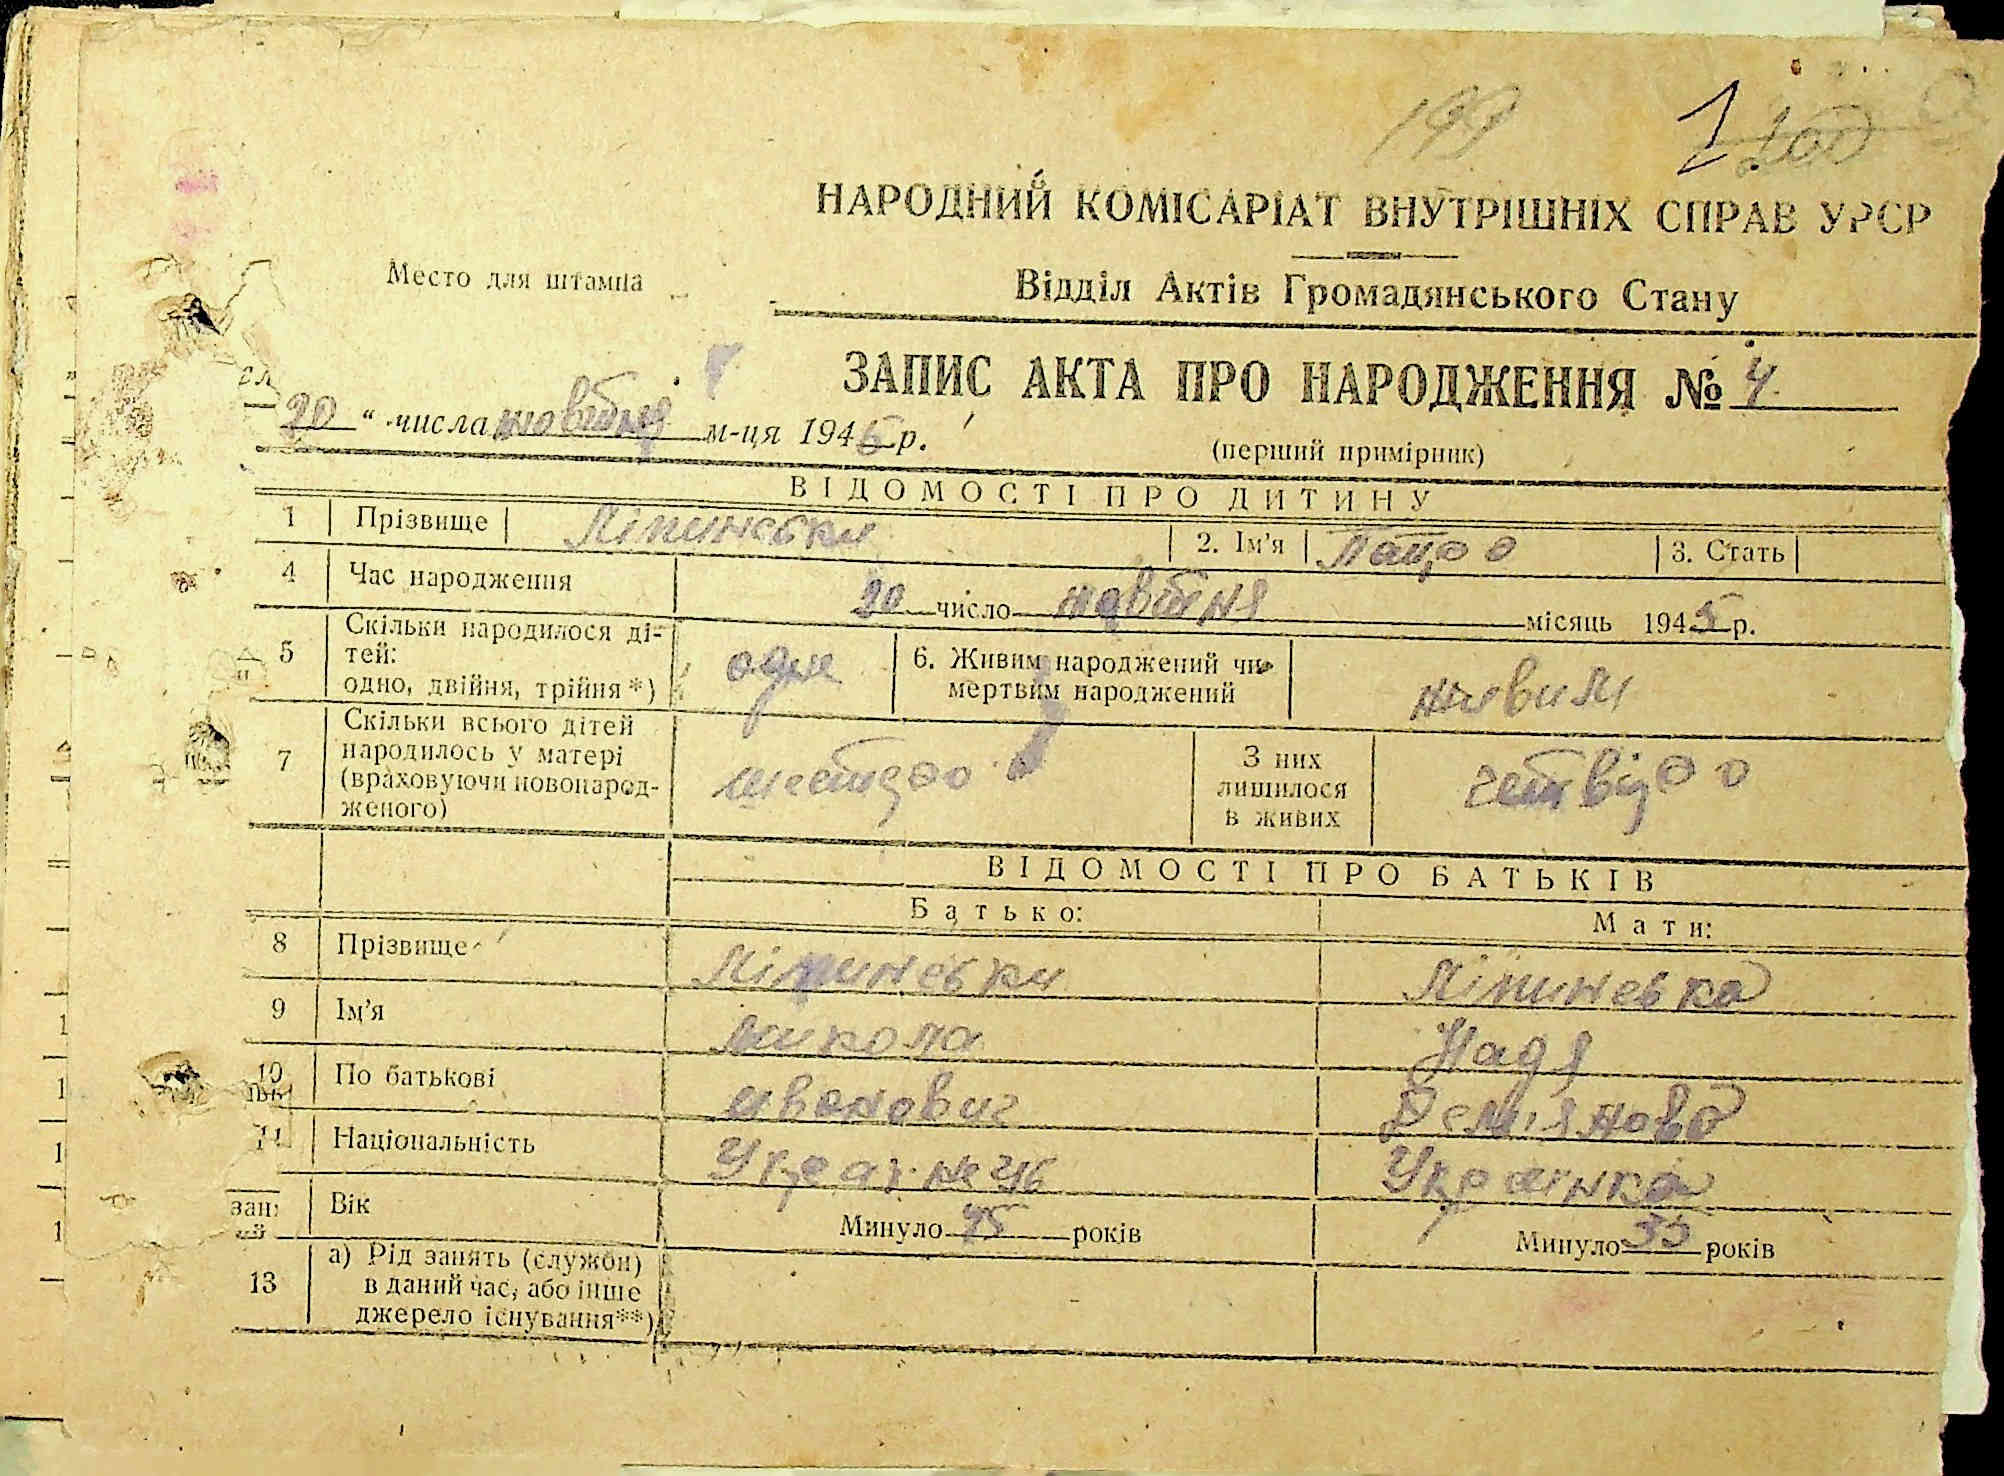 199 1 200
НАРОДНИЙ КОМІСАРІАТ ВНУТРІШНІХ СПРАВ УРСР
Место для штампа
Відділ Актів Громадянського Стану
ЗАПИС АКТА ПРО НАРОДЖЕННЯ № 4
20 “ числа жовтня м-ця 1945 р.
(перший примірник)
ВІДОМОСТІ ПРО ДИТИНУ
1 Прізвище Ліпинськи 2. Ім'я 3. Стать
4 Час народження 20 число жовтня місяць 1945 р.
5 Скільки народилося ді-
тей:
одно, двійня, трійня*) одне
6. Живим народжений чи
мертвим народжений живим
7 Скільки всього дітей
народилось у матері
(враховуючи новонарод-
женого) шестеро
З них
лишилося
в живих четверо
ВІДОМОСТІ ПРО БАТЬКІВ
Батько: Мати:
8 Прізвище Ліпинськи Ліпинська
9 Ім'я Микола Надя
10 По батькові Иванович Демянова
11 Національність Українець Українка
Вік Минуло 45 років Минуло 33 років
13 а) Рід занять (служби)
в даний час, або інше
джерело існування**)